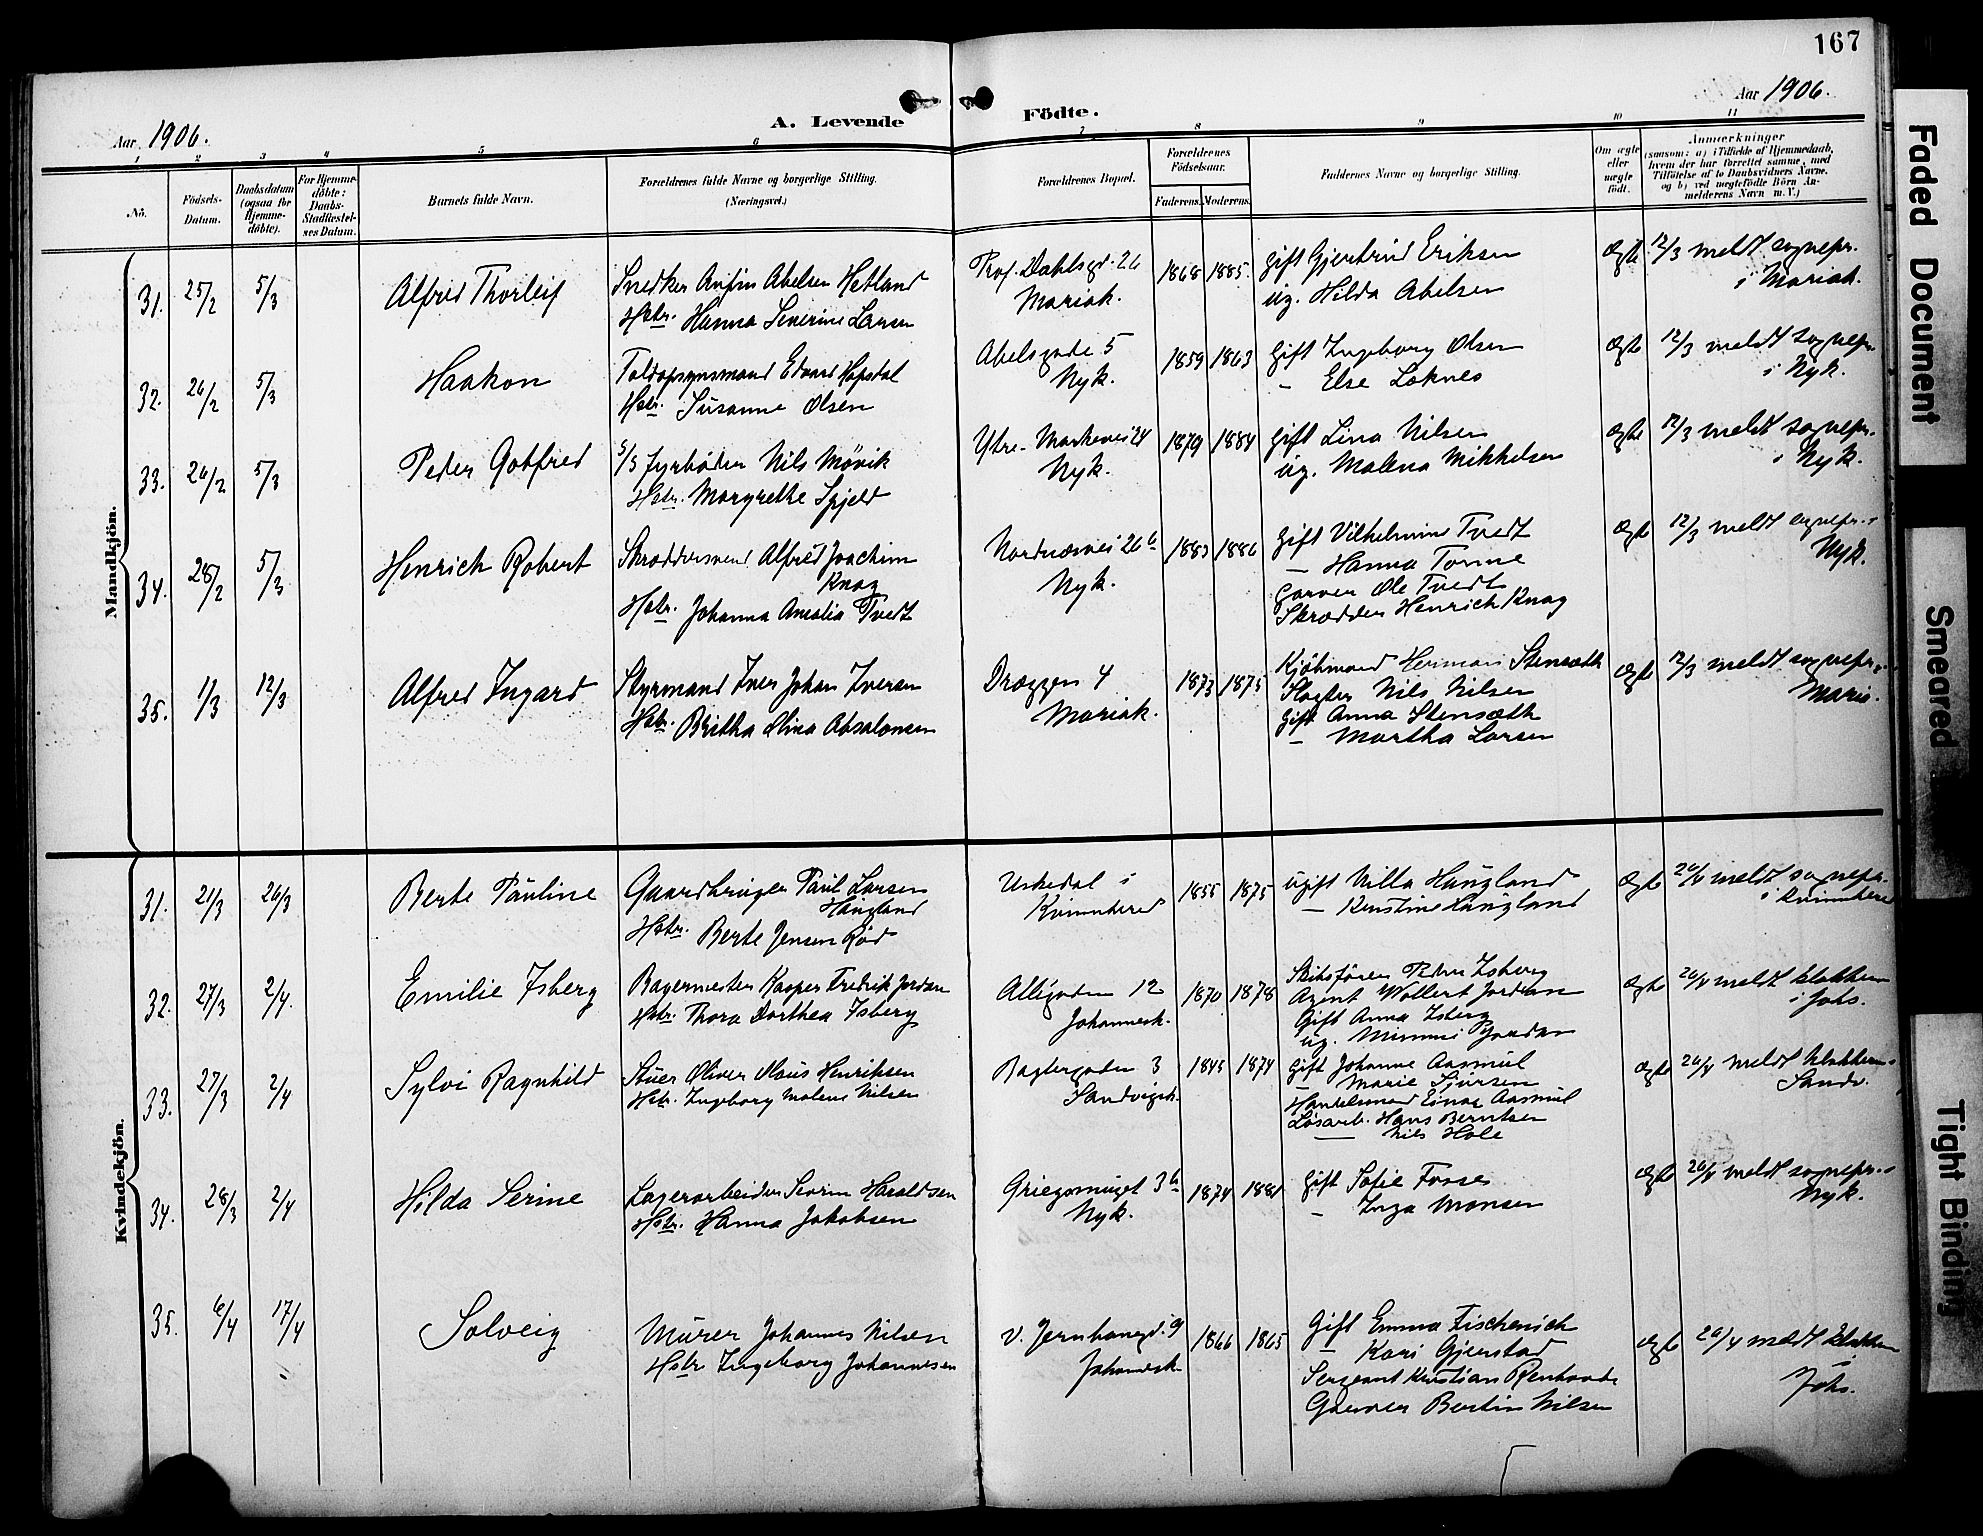 167
Aar 1906.
A. Levende Födte.
Aar 1906.
1 2 3 4 5 6 7 8 9 10 11
No.
Födsels-Datum.
Daabsdatum (ogsaa for Hjemme-döbte).
For Hjemme-döbte: Daabs-Stadfæstel-ses Datum.
Barnets fulde Navn.
Forældrenes fulde Navne og borgerlige Stilling.
(Næringsvei.)
Forældrenes Bopæl.
Forældrenes Födselsaar.
Faderens. Moderens.
Faddernes Navne og borgerlige Stilling.
Om ægte eller uægte födt.
Anmærkninger
(saasom: a) i Tilfælde af Hjemmedaab, hvem der har forrettet samme, med Tilföielse af to Daabsvidners Navne, og b) ved uægtefödte Börn Anmelderens Navn m. V.)
Mandkjön.
31. 25/2 5/3 Alfred Thorleif
Snedker Anfin Abelsen Hetland
Hstr. Hanna Severine Larsen
Prof. Dahlsgd. 26
Mariak.
1868 1885.
gift Gjertrud Eriksen
ug. Hilda Abelsen
Ægte 12/3 meldt sognepr.
i Mariak.
32. 26/2 5/3 Haakon
Toldopsynsmand Edvard Hopstal
Hstr. Susanne Olsen
Abelsgade 5
Nyk.
1859 1863
Gift Ingeborg Olsen
– Else Loknes
Ægte 12/3 meldt sognepr.
i Nyk.
33. 26/2 5/3 Peder Gotfred
S/S fyrbøder Nils Møvik
Hstr. Margrethe Spjeld
Ytre-Markevei 24
Nyk.
1879 1884
gift Lina Nilsen
ug. Malena Mikkelsen
Ægte 12/3 meldt sognepr.
i Nyk.
34. 28/2 5/3 Henrich Robert
Skræddersvend Alfred Joachim
Knag
Hstr. Johanna Amalia Tvedt
Nordnæsvei 26 b
Nyk.
1883 1886
Gift Vilhelmine Tvedt
– Hanna Torme
Garver Ole Tvedt
Skrædder Henrich Knag
Ægte 12/3 meldt sognepr. i
Nyk.
35. 1/3 12/3 Alfred Ingard
Styrmand Iver Johan Iversen
Hstr. Britha Olina Absalonsen
Dræggen 4
Mariak.
1873 1875
Kjøbmand Herman Stensæth
Slagter Nils Nilsen
Gift Anna Stensæth
– Martha Larsen
Ægte 12/3 meldt sognepr. i
Maria.
Kvindekjön.
31. 21/3 26/3 Berte Pauline
Gaardbruger Paul Larsen
Haugland
Hstr. Berte Jensen Rød
Uskedal i
Kvinnhered
1855 1875
Ugift Villa Haugland
– Kristine Haugland
Ægte 26/4 meldt sognepr.
i Kvinnhered
32. 27/3 2/4. Emilie Isberg
Bagermester Kasper Fredrik Jordan
Hstr. Thora Dorthea Isberg
Allégaden 12
Johannesk.
1870 1878
Skibsfører Peder Isberg
Agent Wollert Jordan
Gift Anna Isberg
ug. Mimmi Jordan
Ægte 26/4 meldt klokkeren
i Johs.
33. 27/3 2/4 Sylvi Ragnhild
Stuer Oliver Olaus Henriksen
Hstr. Ingeborg Malene Nilsen
Bagergaden 3
Sandvigsk.
1845 1874
Gift Johanne Aasmul
– Marie Sjursen
Handelsmand Einar Aasmul
Løsarb. Hans Berntsen
— Nils Hole
Ægte 26/4 meldt klokkeren i
Sandv.
34. 28/3 2/4 Hilda Serine
Lagerarbeider Severin Haraldsen
Hstr. Hanna Jakobsen
Griegsmuget 3 b
Nyk.
1874 1881
Gift Sofie Fosse
– Inga Monsen
Ægte 26/4 meldt sognepr. i
Nyk.
35. 6/4 17/4 Solveig
Murer Johannes Nilsen
Hstr. Ingeborg Johannesen
V. Jernbanegd. 9
Johannesk.
1866 1865
Gift Emma Fischenich
– Kari Gjerstad
Sergeant Kristian
Garver Bertin Nilsen
Ægte 26/4 meldt klokkeren
i
Johs.
Faded Document
Smeared
Tight Binding